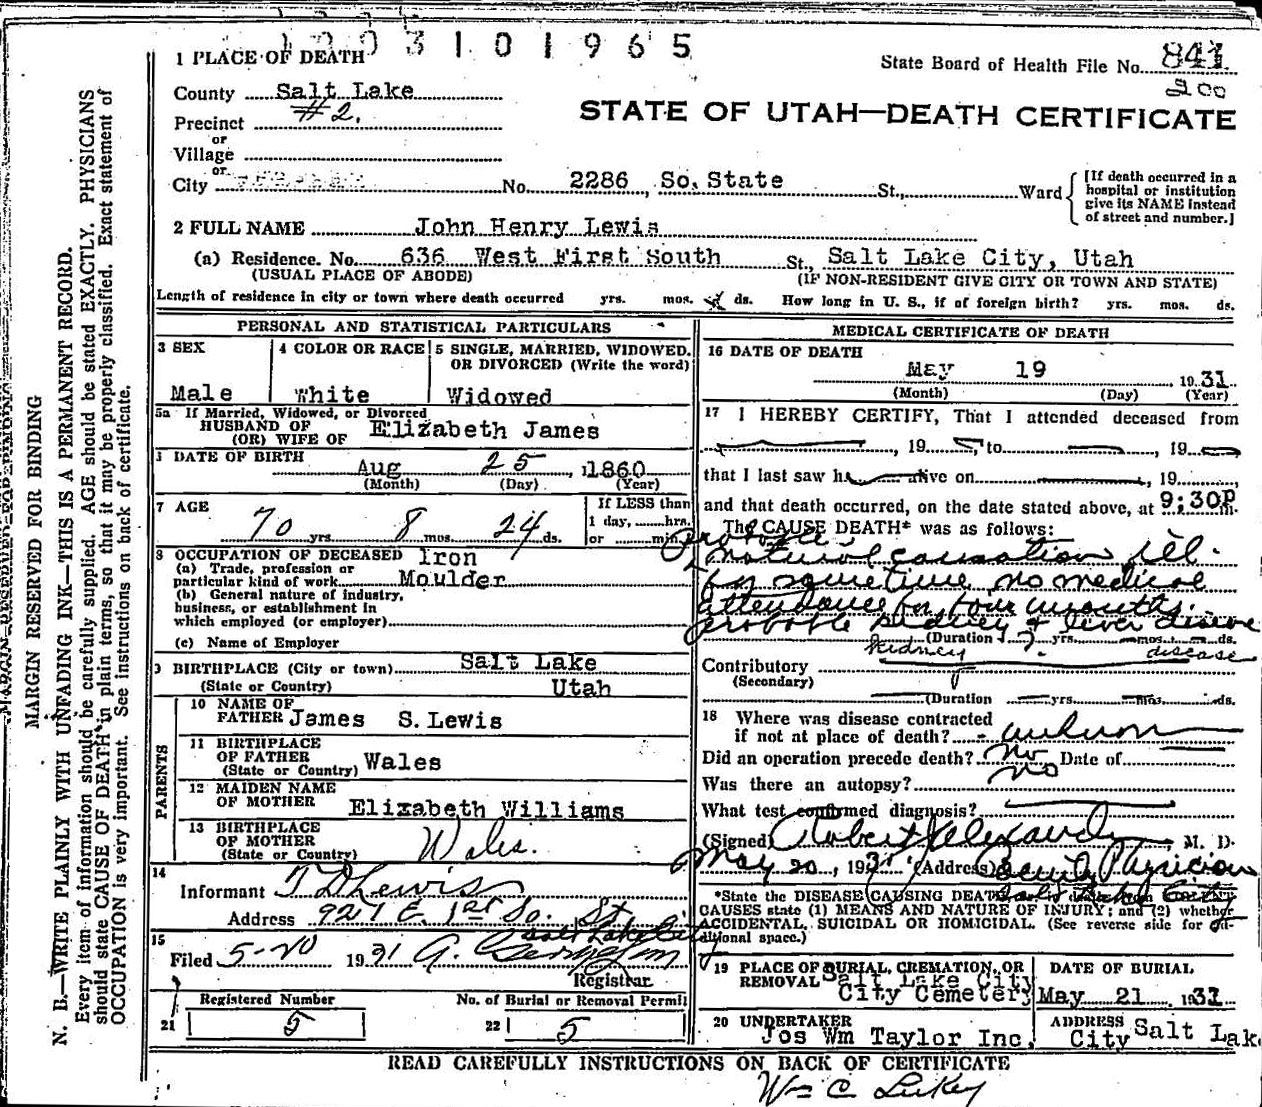 3 1 0 1 9 6 5
1 PLACE OF DEATH
State Board of Health File No. 841
200
County Salt Lake
#2.
Precinct
STATE OF UTAH—DEATH CERTIFICATE
or
Village
or
City No. 2286 So. State St., Ward
[If death occurred in a
hospital or institution
give its NAME instead
of street and number.]
2 FULL NAME John Henry Lewis
(a) Residence. No. 636 West First South St., Salt Lake City, Utah
(USUAL PLACE OF ABODE) (IF NON-RESIDENT GIVE CITY OR TOWN AND STATE)
Length of residence in city or town where death occurred yrs. mos. ds. How long in U. S., if of foreign birth? yrs. mos. ds.
PERSONAL AND STATISTICAL PARTICULARS
3 SEX
Male
4 COLOR OR RACE
White
5 SINGLE, MARRIED, WIDOWED,
OR DIVORCED (Write the word)
Widowed
5a If Married, Widowed, or Divorced
HUSBAND OF
(OR) WIFE OF Elizabeth James
DATE OF BIRTH
Aug 25, 1860
(Month) (Day) (Year)
7 AGE
70 yrs. 8 mos. 24 ds.
If LESS than
1 day, hrs.
or min.
8 OCCUPATION OF DECEASED Iron
(a) Trade, profession or
particular kind of work Moulder
(b) General nature of industry,
business, or establishment in
which employed (or employer)
(c) Name of Employer
9 BIRTHPLACE (City or town) Salt Lake
(State or Country) Utah
PARENTS
10 NAME OF
FATHER James S. Lewis
11 BIRTHPLACE
OF FATHER
(State or Country) Wales
12 MAIDEN NAME
OF MOTHER Elizabeth Williams
13 BIRTHPLACE
OF MOTHER
(State or Country) Wales.
14
Informant T D Lewis
Address 927 E. 1st So. St
Salt Lake City
15
Filed 5-20 1931
Registrar
Registered Number
21 5
No. of Burial or Removal Permit
22 5
MEDICAL CERTIFICATE OF DEATH
16 DATE OF DEATH
May 19, 1931
(Month) (Day) (Year)
17 I HEREBY CERTIFY, That I attended deceased from
, 19 , to , 19
that I last saw h alive on , 19
and that death occurred, on the date stated above, at 9:30P m.
The CAUSE DEATH* was as follows:
probable
natural causation ill
for sometime no medical
attendance for four months.
probable kidney & liver disease
(Duration ? yrs. mos. ds.
kidney disease
Contributory
(Secondary)
(Duration yrs. mos. ds.
18 Where was disease contracted
if not at place of death? unknown
Did an operation precede death? No Date of
Was there an autopsy? No
What test confirmed diagnosis?
(Signed) Robert Alexander, M. D.
May 20, 1931 (Address) County Physician
Salt Lake City
*State the DISEASE CAUSING DEATH,
CAUSES state (1) MEANS AND NATURE OF INJURY; and (2) whether
ACCIDENTAL, SUICIDAL OR HOMICIDAL. (See reverse side for ad-
ditional space.)
19 PLACE OF BURIAL, CREMATION, OR
REMOVAL Salt Lake City
City Cemetery
DATE OF BURIAL
May 21, 1931
20 UNDERTAKER
Jos Wm Taylor Inc.
ADDRESS Salt Lak
City
READ CAREFULLY INSTRUCTIONS ON BACK OF CERTIFICATE
Wm C Lukey
MARGIN RESERVED FOR BINDING
N. B.—WRITE PLAINLY WITH UNFADING INK—THIS IS A PERMANENT RECORD.
Every item of information should be carefully supplied. AGE should be stated EXACTLY. PHYSICIANS
should state CAUSE OF DEATH in plain terms, so that it may be properly classified. Exact statement of
OCCUPATION is very important. See instructions on back of certificate.